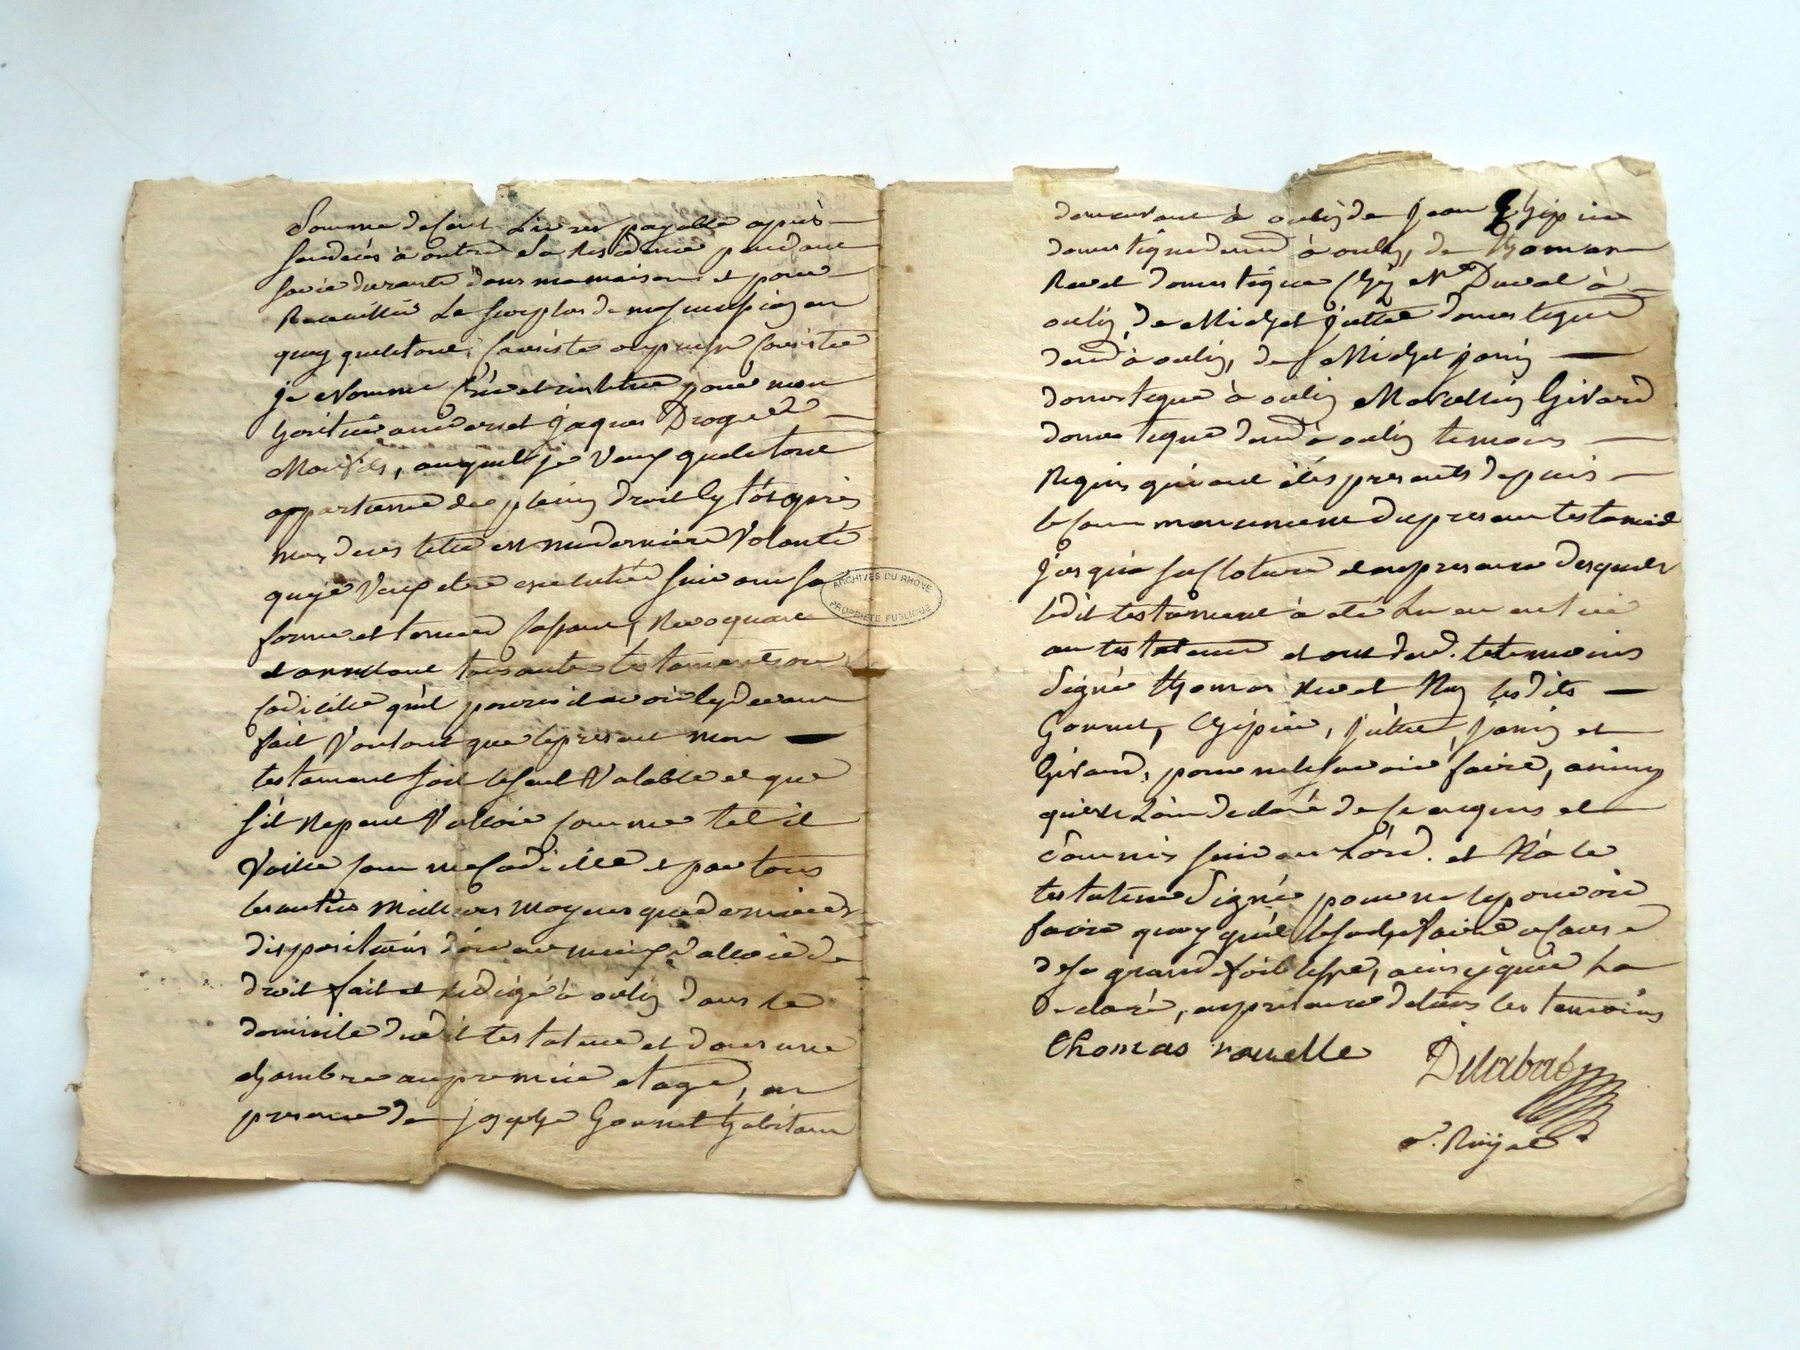 Somme de Cent Livres payable après
son décès à outre sa Residence pendant
sa vie durante dans ma maison et pour
Recueillir Le surplus de ma succession en
quoy quelle soit, Consiste ou puisse Consister
je Nomme Crée et institue pour mon
heritier universel jaques Drogue
Mon fils, auquel je Veux quele tout
appartienne de plein droit Cy tôt après
mon deces telle est ma derniere Volonté
que je Veux etre executée suivant sa
forme et teneur Cassant, Revoquant
et annullant tous autres testaments ou
Codicille qu'il pourroit avoir Cy devant
fait Voulant que le present mon
testament soit le seul Valable et que
s'il Ne peut Valloir Comme tel il
Vaille Comme Codicille et par tous
les autres Meilleurs Moyens que dernieres
dispositions doivent mieux Valloir de
droit fait et Rédigé à oulin dans le
domicile dudit testateur et dans une
chambre au premier etage, en
presence de joseph Gonnet habitant
demeurant à oulin de Jean Chipier
domestique demt à oulin, de thomas
Revet domestique chez Mr Duval à
oulin, de Michel jullie domestique
demt à oulin, de Michel janin
domestique à oulin Marcellin Girard
domestique demt à oulin temoins
Requis qui ont étés presents depuis
le Commencement du present testament
jusqu'a sa Cloture et en presence desquels
ledit testament à eté Lu en entier
au testateur et ont desd. temoins
Signé thomas Revet Non lesdits
Gonnet, Chipier, jullie, janin et
Girard, pour ne le savoir faire, ainsy
quils L'ont declaré de Ce enquis et
Sommis suivant L'ord. et N'a le
testateur Signé pour ne le pouvoir
faire quoy quil le sache faire a Cause
de sa grande foiblesse, ainsy que La
declaré, en presence de tous les temoins
thomas rouelle
Delabat
n.re Royal
ARCHIVES DU RHONE
PROPRIETE PUBLIQUE